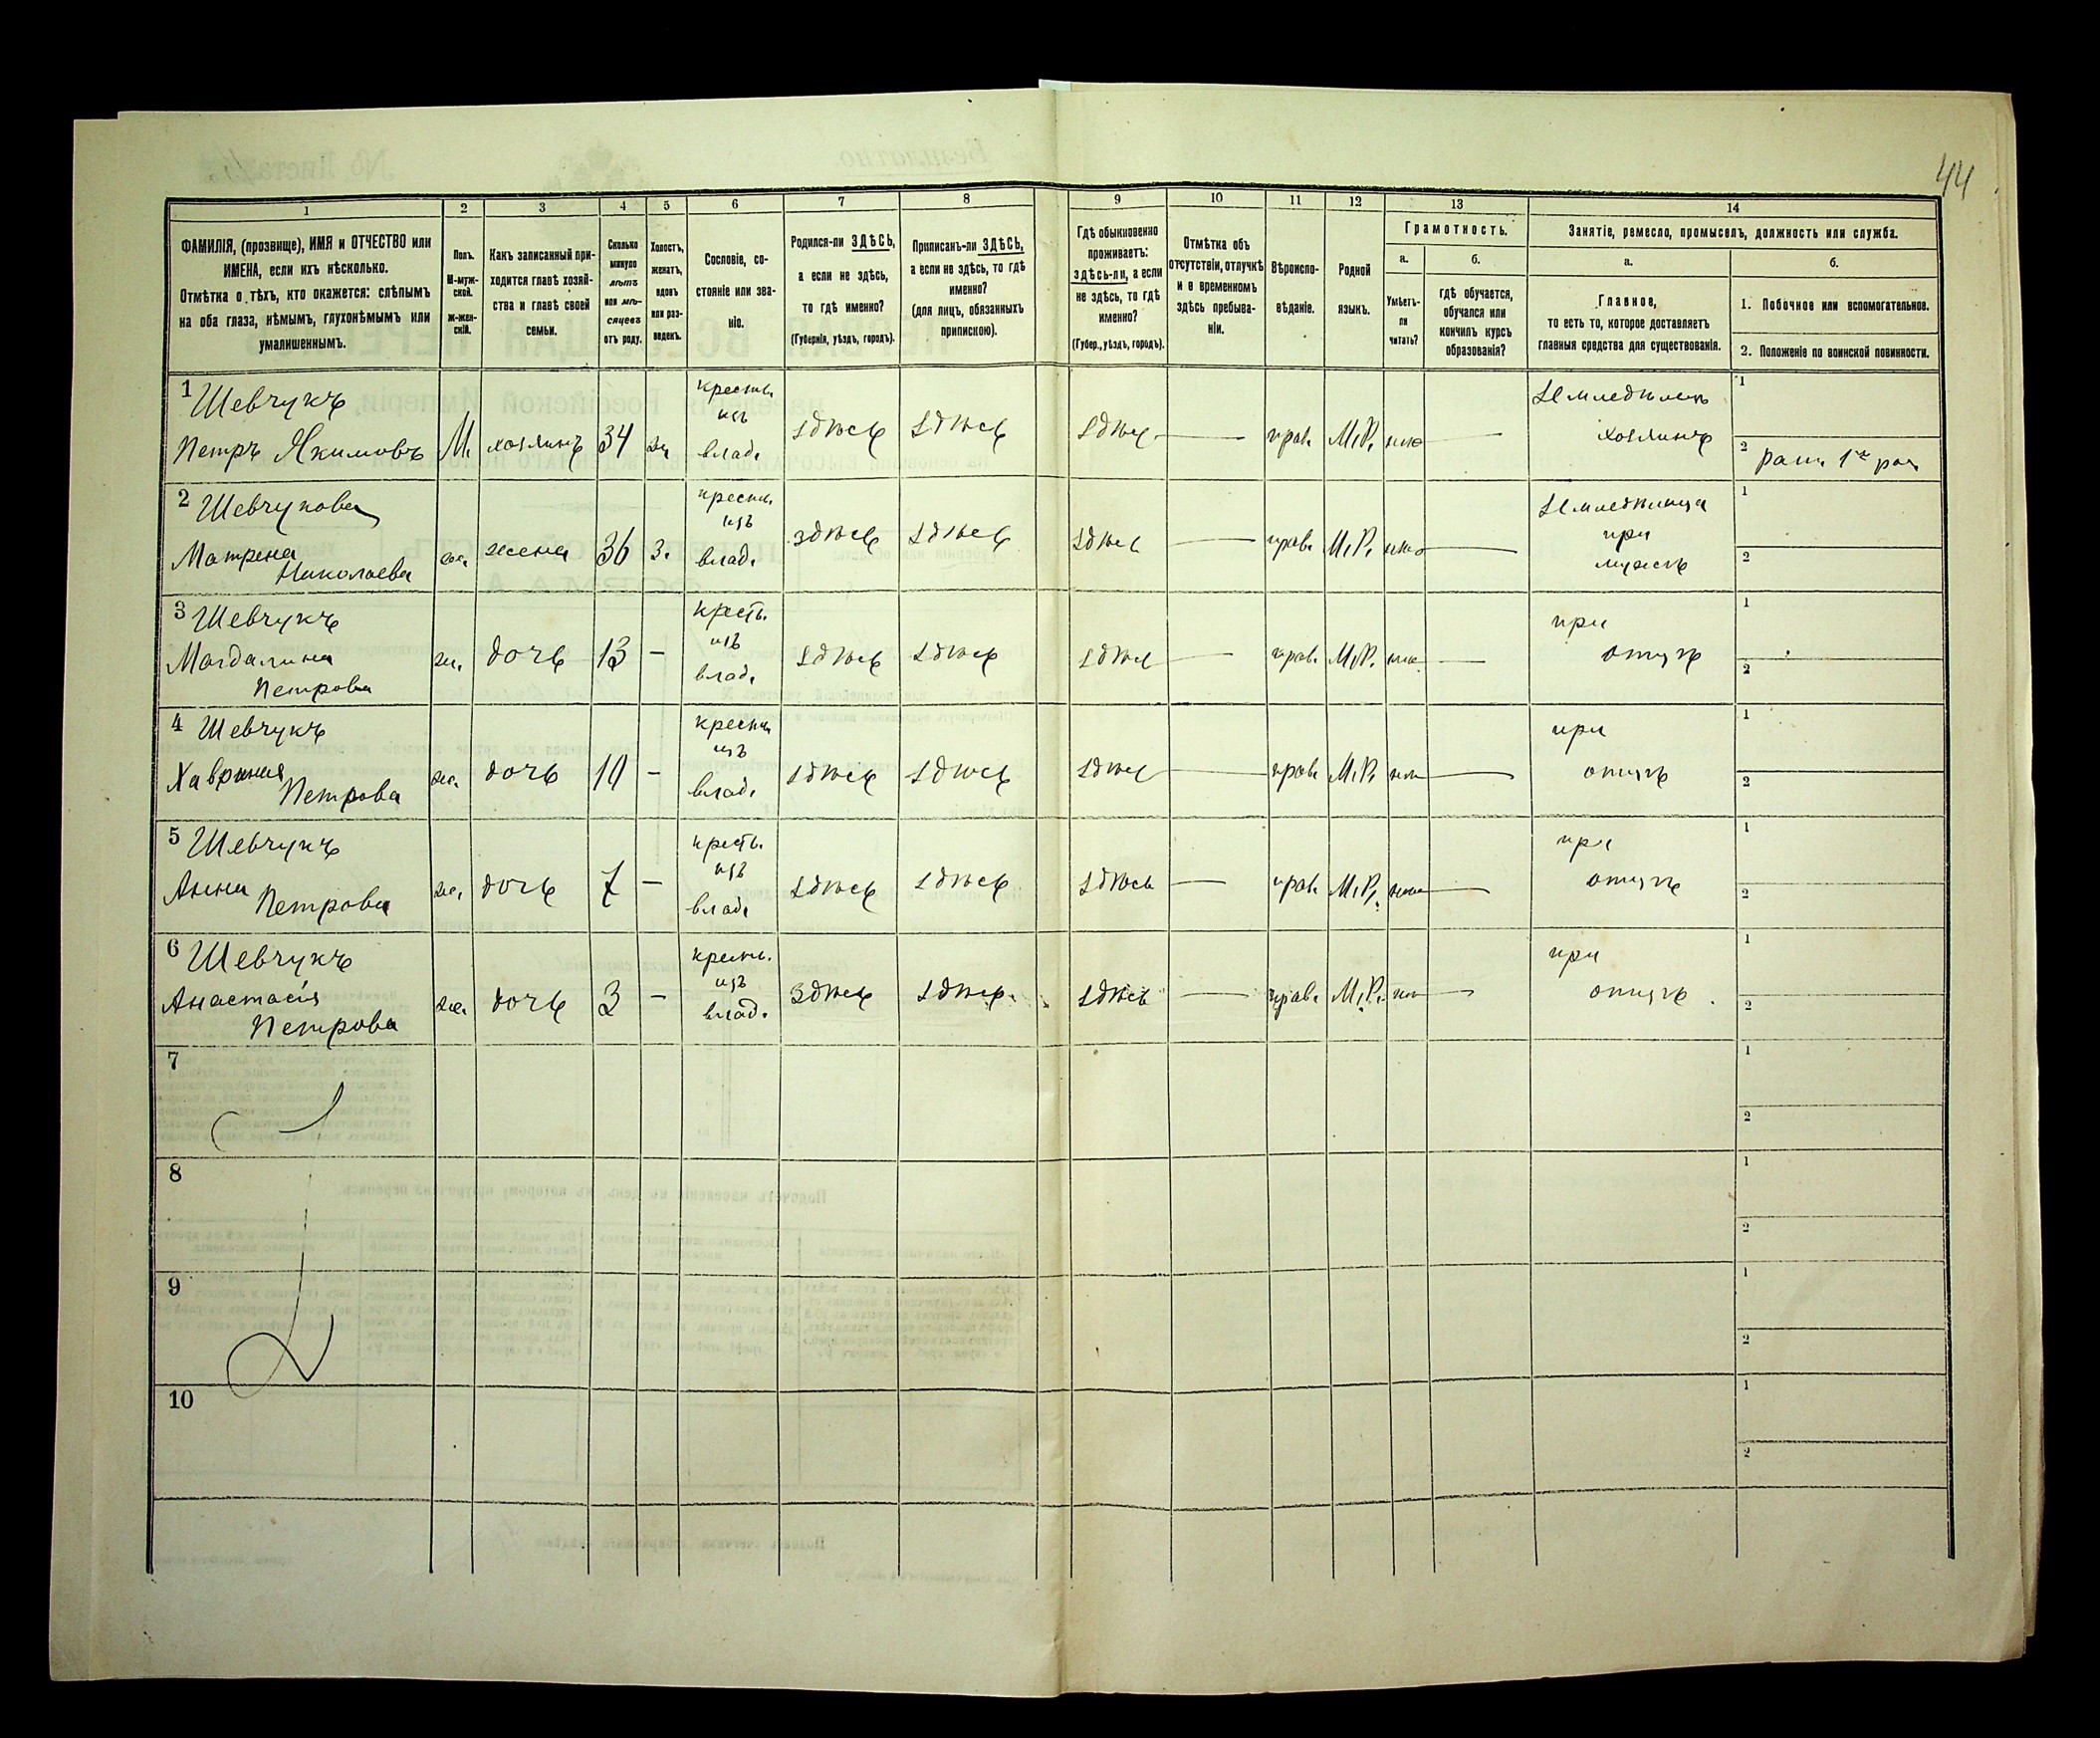 44
1 2 3 4 5 6 7 8 9 10 11 12 13 14
ФАМИЛІЯ, (прозвище), ИМЯ и ОТЧЕСТВО или
ИМЕНА, если ихъ нѣсколько.
Отмѣтка о тѣхъ, кто окажется: слѣпымъ
на оба глаза, нѣмымъ, глухонѣмымъ или
умалишеннымъ.
Полъ.
М-муж-
ской.
Ж-жен-
скій.
Какъ записанный при-
ходится главѣ хозяй-
ства и главѣ своей
семьи.
Сколько
минуло
лѣтъ
или мѣ-
сяцевъ
отъ роду.
Холостъ,
женатъ,
вдовъ
или раз-
веденъ.
Сословіе, со-
стояніе или зва-
ніе.
Родился-ли ЗДѢСЬ,
а если не здѣсь,
то гдѣ именно?
(Губернія, уѣздъ, городъ).
Приписанъ-ли ЗДѢСЬ,
а если не здѣсь, то гдѣ
именно?
(для лицъ, обязанныхъ
припискою).
Гдѣ обыкновенно
проживаетъ:
здѣсь-ли, а если
не здѣсь, то гдѣ
именно?
(Губер., уѣздъ, городъ).
Отмѣтка объ
отсутствіи, отлучкѣ
и о временномъ
здѣсь пребыва-
ніи.
Вѣроиспо-
вѣданіе.
Родной
языкъ.
Грамотность.
а.
Умѣетъ-
ли
читать?
б.
гдѣ обучается,
обучался или
кончилъ курсъ
образованія?
Занятіе, ремесло, промыселъ, должность или служба.
а.
Главное,
то есть то, которое доставляетъ
главныя средства для существованія.
б.
1. Побочное или вспомогательное.
2. Положеніе по воинской повинности.
1 Шевчукъ
Петръ Якимовъ
М. хозяинъ 34 ж.
крестьн.
изъ
влад.
здѣсь здѣсь здѣсь — прав. М.Р. нѣт —
Земледѣлецъ
хозяинъ
1
2 ратн. 1го раз.
2 Шевчукова
Матрена
Николаева
ж. жена 36 з.
крестьн.
изъ
влад.
здѣсь здѣсь здѣсь — прав. М.Р. нѣт —
Земледѣлица
при
мужѣ
1
2
3 Шевчукъ
Магдалина
Петрова
ж. дочь 13 —
кресть.
изъ
влад.
здѣсь здѣсь здѣсь — прав. М.Р. нѣт —
при
отцѣ
1
2
4 Шевчукъ
Хавронія
Петрова
ж. дочь —
крестьн.
изъ
влад.
здѣсь здѣсь здѣсь — прав. М.Р. нѣт —
при
отцѣ
1
2
5 Шевчукъ
Анна
Петрова
ж. дочь 7 —
кресть.
изъ
влад.
здѣсь здѣсь здѣсь — прав. М.Р. нѣт —
при
отцѣ
1
2
6 Шевчукъ
Анастасія
Петрова
ж. дочь 3 —
кресть.
изъ
влад.
здѣсь здѣсь здѣсь — прав. М.Р. нѣт —
при
отцѣ
1
2
7
1
2
8
1
2
9
1
2
10
1
2